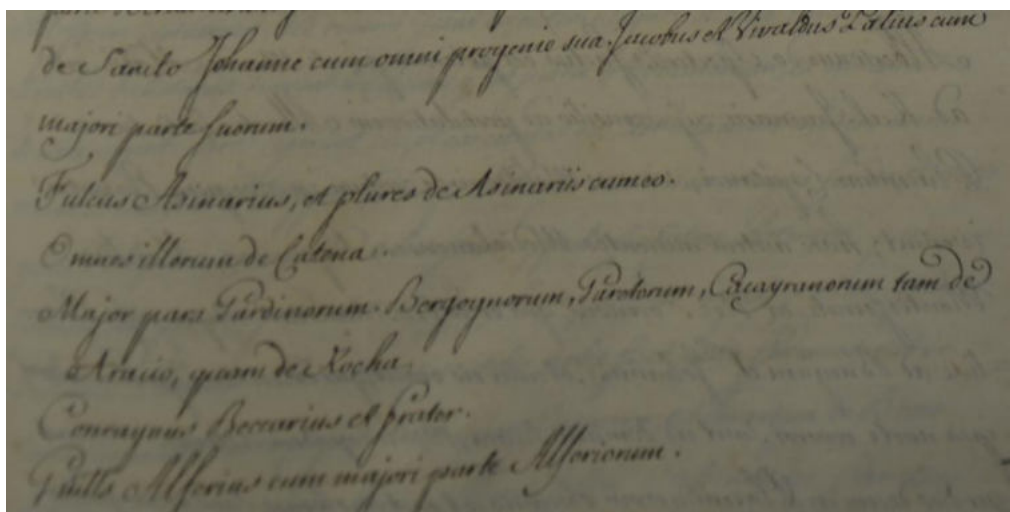 de Sancto Johanne cum omni progenie sua. Jacobus et Vivaldus Lalius cum
majori parte suorum.
Fulcus Asinarius, et plures de Asinariis cum eo.
Omnes illorum de Catena.
Major pars Gardinorum. Bergoynorum, Garotorum, Cacayranorum tam de
Arucio, quam de Rocha.
Conraynus Beccarius et frater.
Guills Alferius cum majori parte Alferiorum.